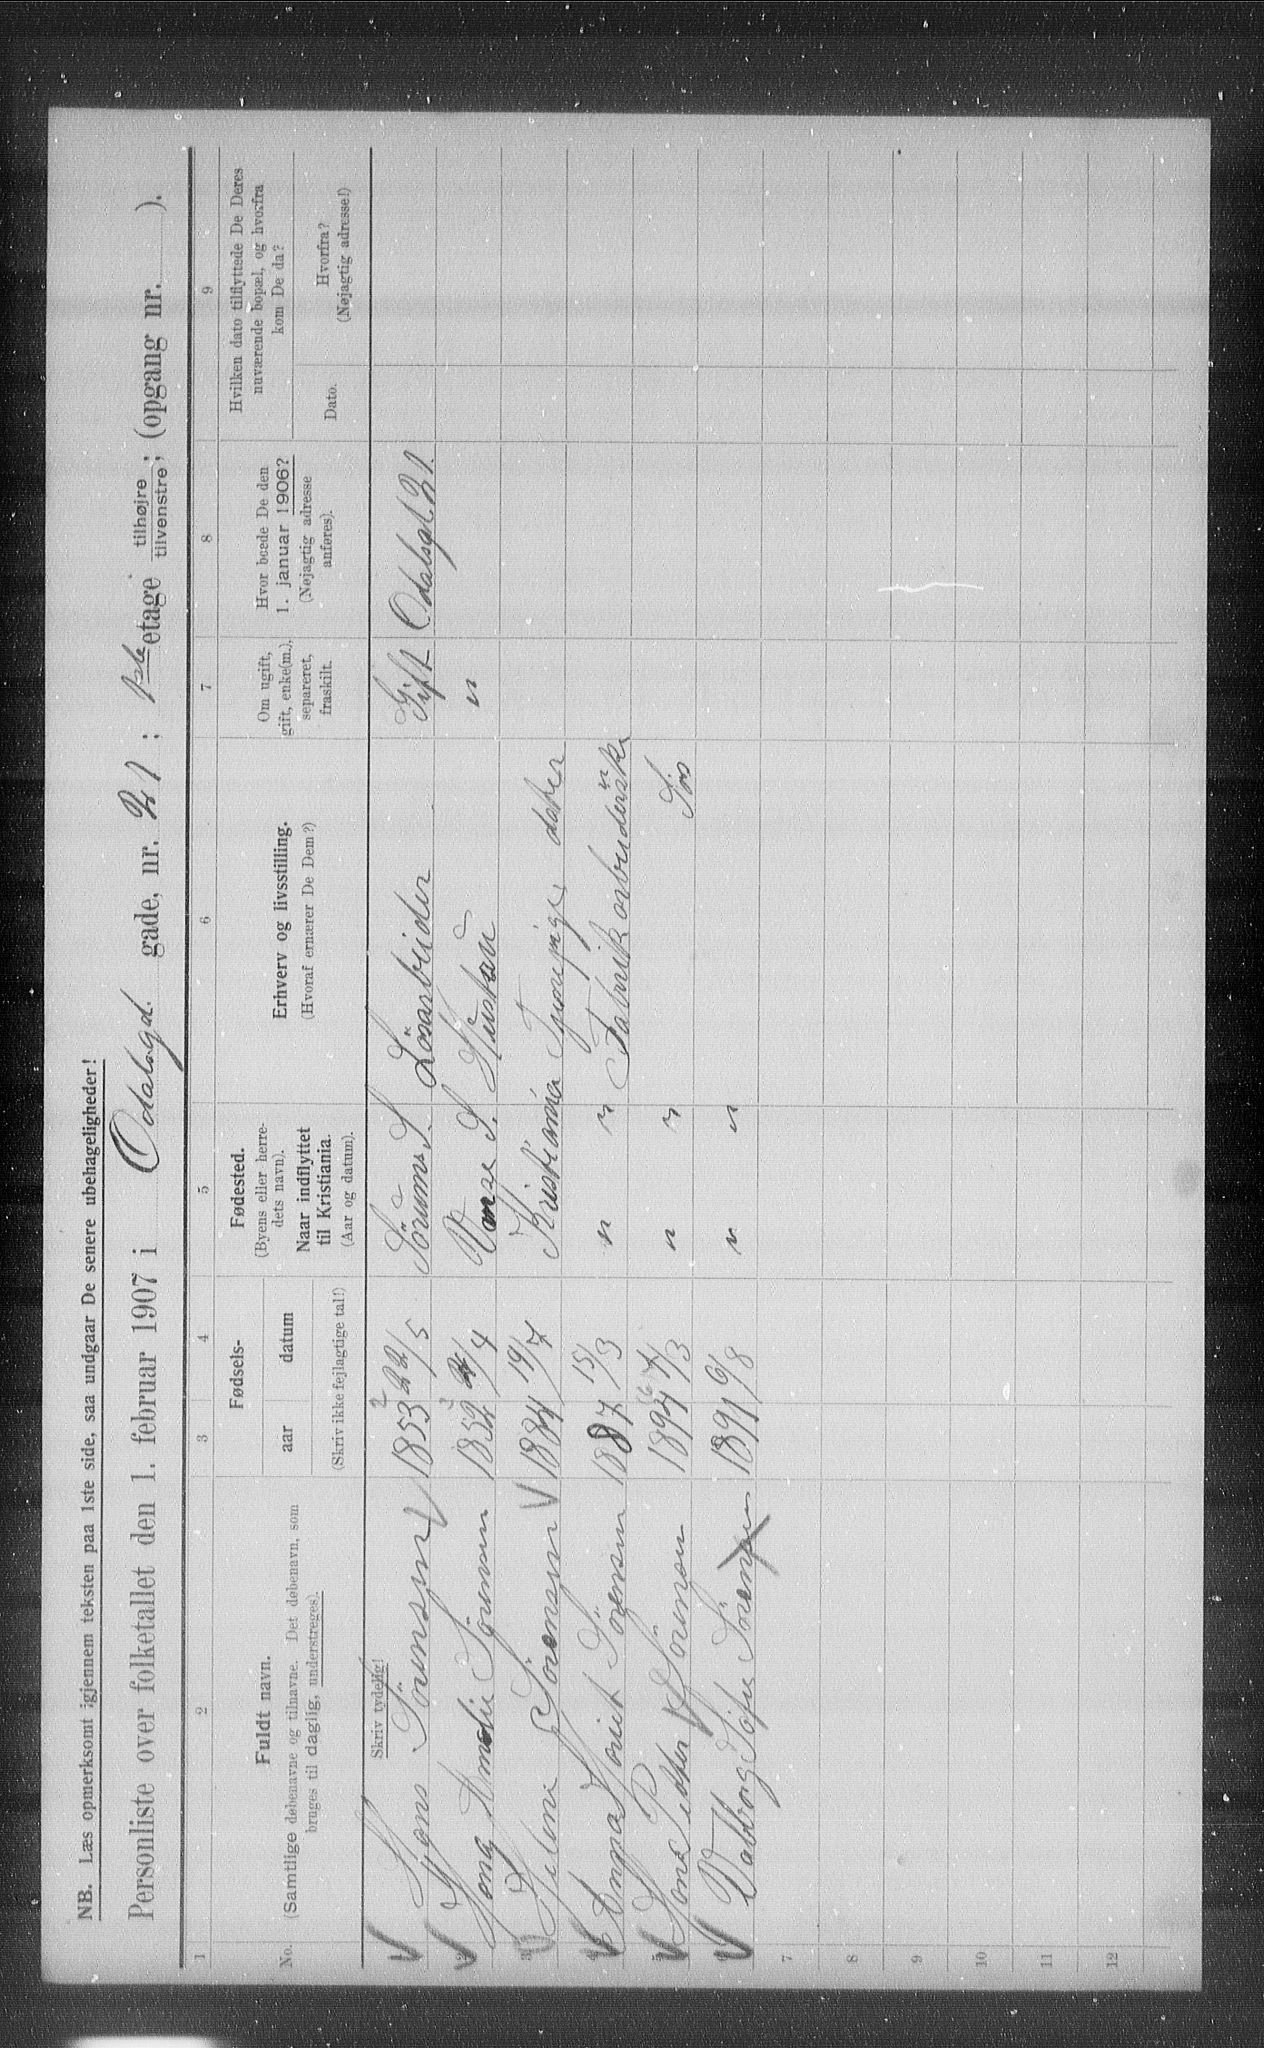 NB. Læs opmerksomt igjennem teksten paa 1ste side, saa undgaar De senere ubehageligheder!
Personliste over folketallet den 1. februar 1907 i Odalsgd. gade, nr. 21; 1ste etage tilhøjre tilvenstre; (opgang nr. ).
1 2 3 4 5 6 7 8 9
No.
Fuldt navn.
(Samtlige døbenavne og tilnavne. Det døbenavn, som
bruges til daglig, understreges).
Fødsels-
aar datum
(Skriv ikke fejlagtige tal!)
Fødested.
(Byens eller herre-
dets navn).
Naar indflyttet
til Kristiania.
(Aar og datum).
Erhverv og livsstilling.
(Hvoraf ernærer De Dem?)
Om ugift,
gift, enke(m.),
separeret,
fraskilt.
Hvor boede De den
1. januar 1906?
(Nøjagtig adresse
anføres).
Hvilken dato tilflyttede De Deres
nuværende bopæl, og hvorfra
kom De da?
Dato.
Hvorfra?
(Nøjagtig adresse!)
Skriv tydelig!
Sørensen 1853 22/5 Sørums S. Lösarbeider Gift Odalsgt 21.
2 Amalie Sørensen /4 S. Hustru "
3 Sørensen 1884 19/7 Kristiania datter
Sørensen 1887 15/3 " " Fabrikarbeiderske "
Petter Sørensen /3 " "
Valborg Sofie Sørensen 1891 6/8 " "
7
8
9
10
11
12